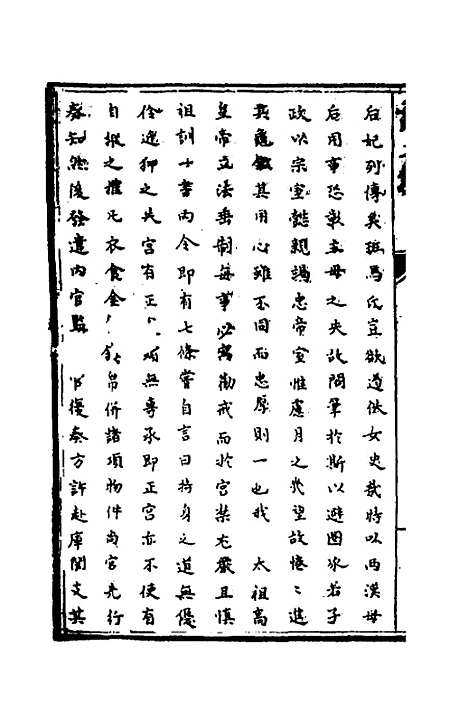 后妃列傳矣班馬氏豈欲遵依女史哉特以西漢母
后用事恐彰主母之失故閣筆於斯以避圖求若子
政以宗室懿親竭忠帝室惟慮月之幾望故惓〻進
其用心雖不同而忠厚則一也我 太祖高
皇帝立法垂制每事必寓勸戒而於宮禁尤嚴且慎
祖訓十書內令即有七條嘗自言曰持身之道無優
伶進狎之失宮有正無專承即正宮亦不使有
自服之權凡衣食金帛併諸項物件尚宮先行
奏知然後發遣內官監 官復奏方許赴庫關支其